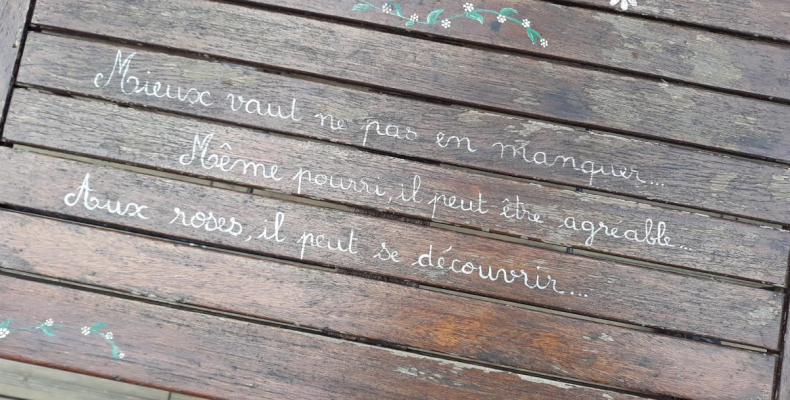 Mieux vaut ne pas en manquer...
Même pourri, il peut être agréable...
Aux roses, il peut se découvrir...